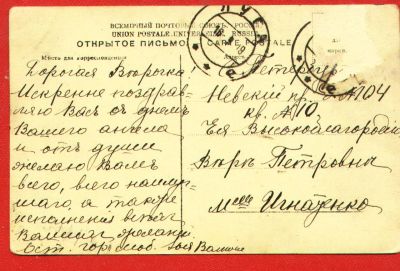 ВСЕМИРНЫЙ ПОЧТОВЫЙ СОЮЗЪ. РОССІЯ.
UNION POSTALE UNIVERSELLE. RUSSIE.
ОТКРЫТОЕ ПИСЬМО — CARTE POSTALE
Мѣсто для корреспонденціи
Дорогая Вѣрочка!
Искренне поздрав-
ляю Васъ съ днемъ
Вашего ангела
и отъ души
желаю Вамъ
всего, всего наилуч-
шаго, а также
исполненія всѣхъ
Вашихъ желаній
ЛУГА
Петербургъ
Невскій пр. д. №104
кв. №10
Ея Высокоблагородію
Вѣрѣ Петровнѣ
Игнатенко